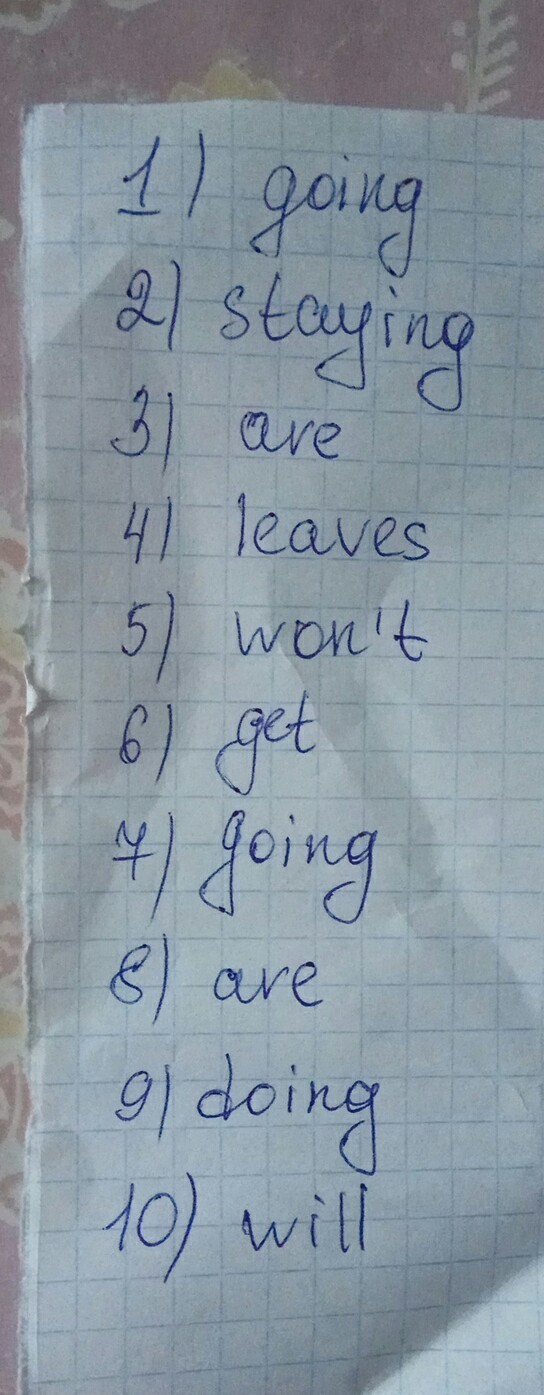 1) going
2) staying
3) are
4) leaves
5) won't
6) get
7) going
8) are
9) doing
10) will